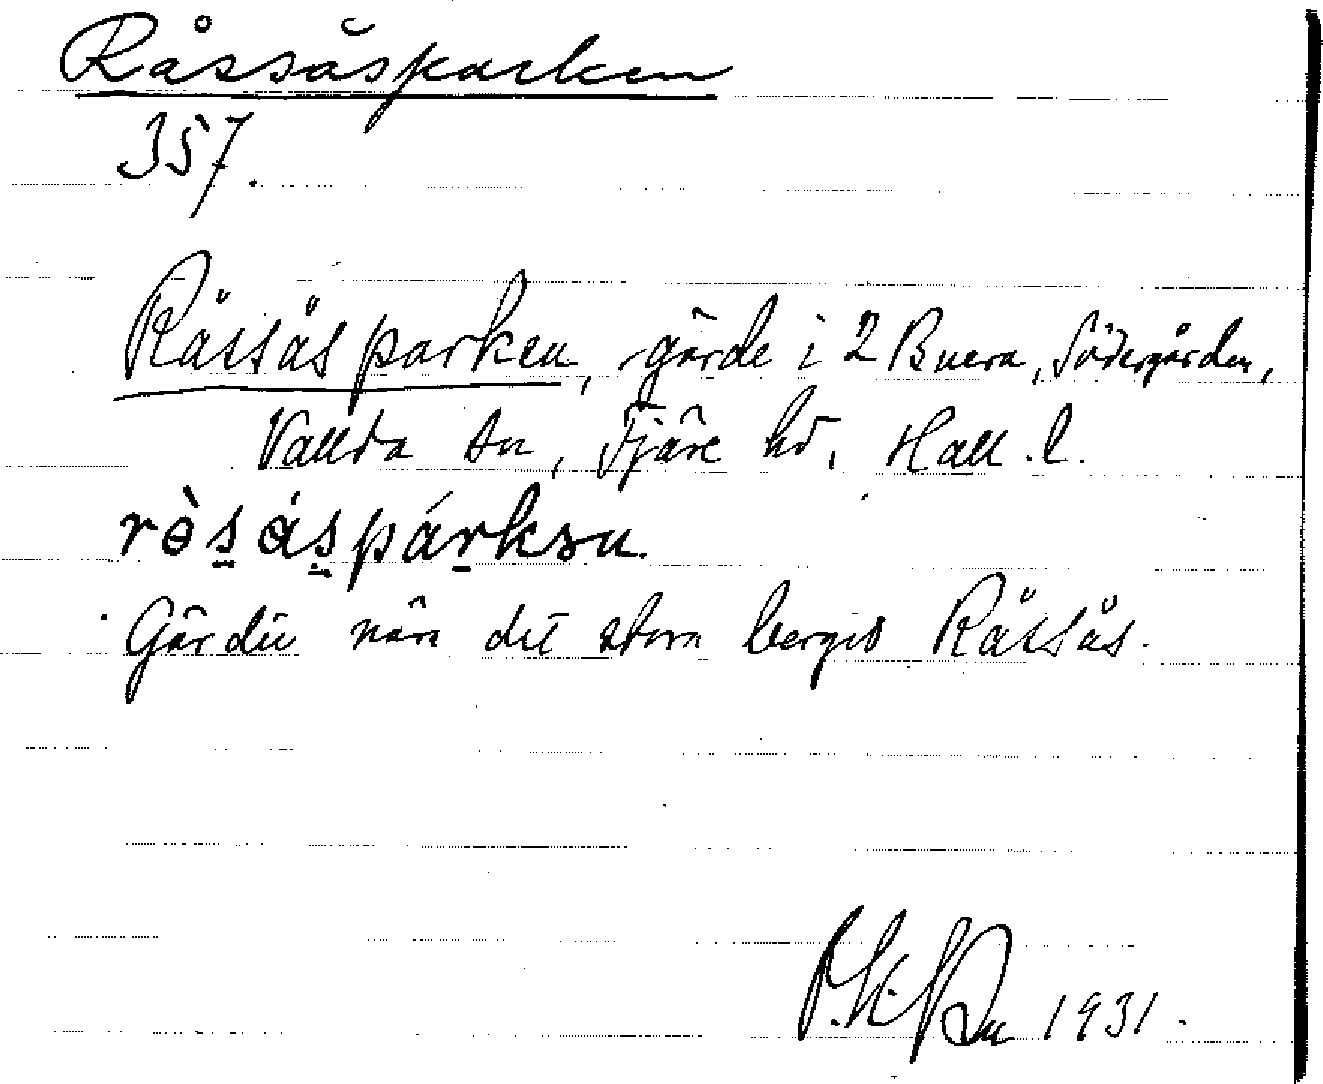 Råssåsparken
357.
Råssåsparken, gärde i 2 Buera, Södergården,
Vallda sn, Fjäre hd, Hall. l.
rò̀s̱ás̱párkən.
Gärdet nära det stora berget Råssås.
1931.